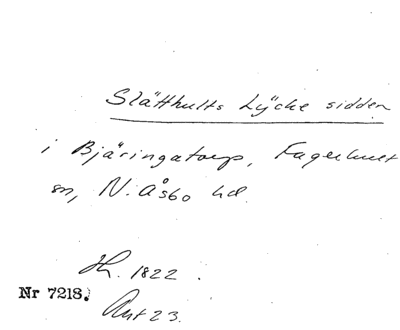 Slätthults Lÿcke sidden
i Bjäringatorp, Fagerhult
sn, N. Åsbo hd.
Hh. 1822.
Nr 7218.
Akt 23.